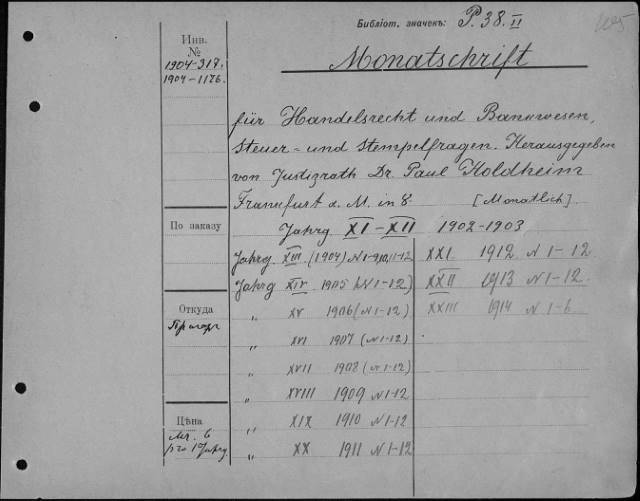 Библіот. значекъ: P. 38. II
Инв.
№
1904-317.
1904-1176.
Monatschrift
für Handelsrecht und Bankwesen,
Steuer- und Stempelfragen. Herausgegeben
von Justizrath Dr. Paul Holdheim
Frankfurt a. M. in 8. [Monatlich].
По заказу
Jahrg XI-XII 1902-1903
Jahrg XIII. (1904) N 1-9,10,11-12
Jahrg XIV 1905 (N 1-12)
„ XV 1906 (N 1-12)
„ XVI 1907 (N 1-12)
„ XVII 1908 (N 1-12)
„ XVIII 1909 N 1-12
„ XIX 1910 N 1-12
„ XX 1911 N 1-12
XXI 1912 N 1-12
XXII 1913 N 1-12
XXIII 1914 N 1-6
Откуда
Цѣна
Mr. 6